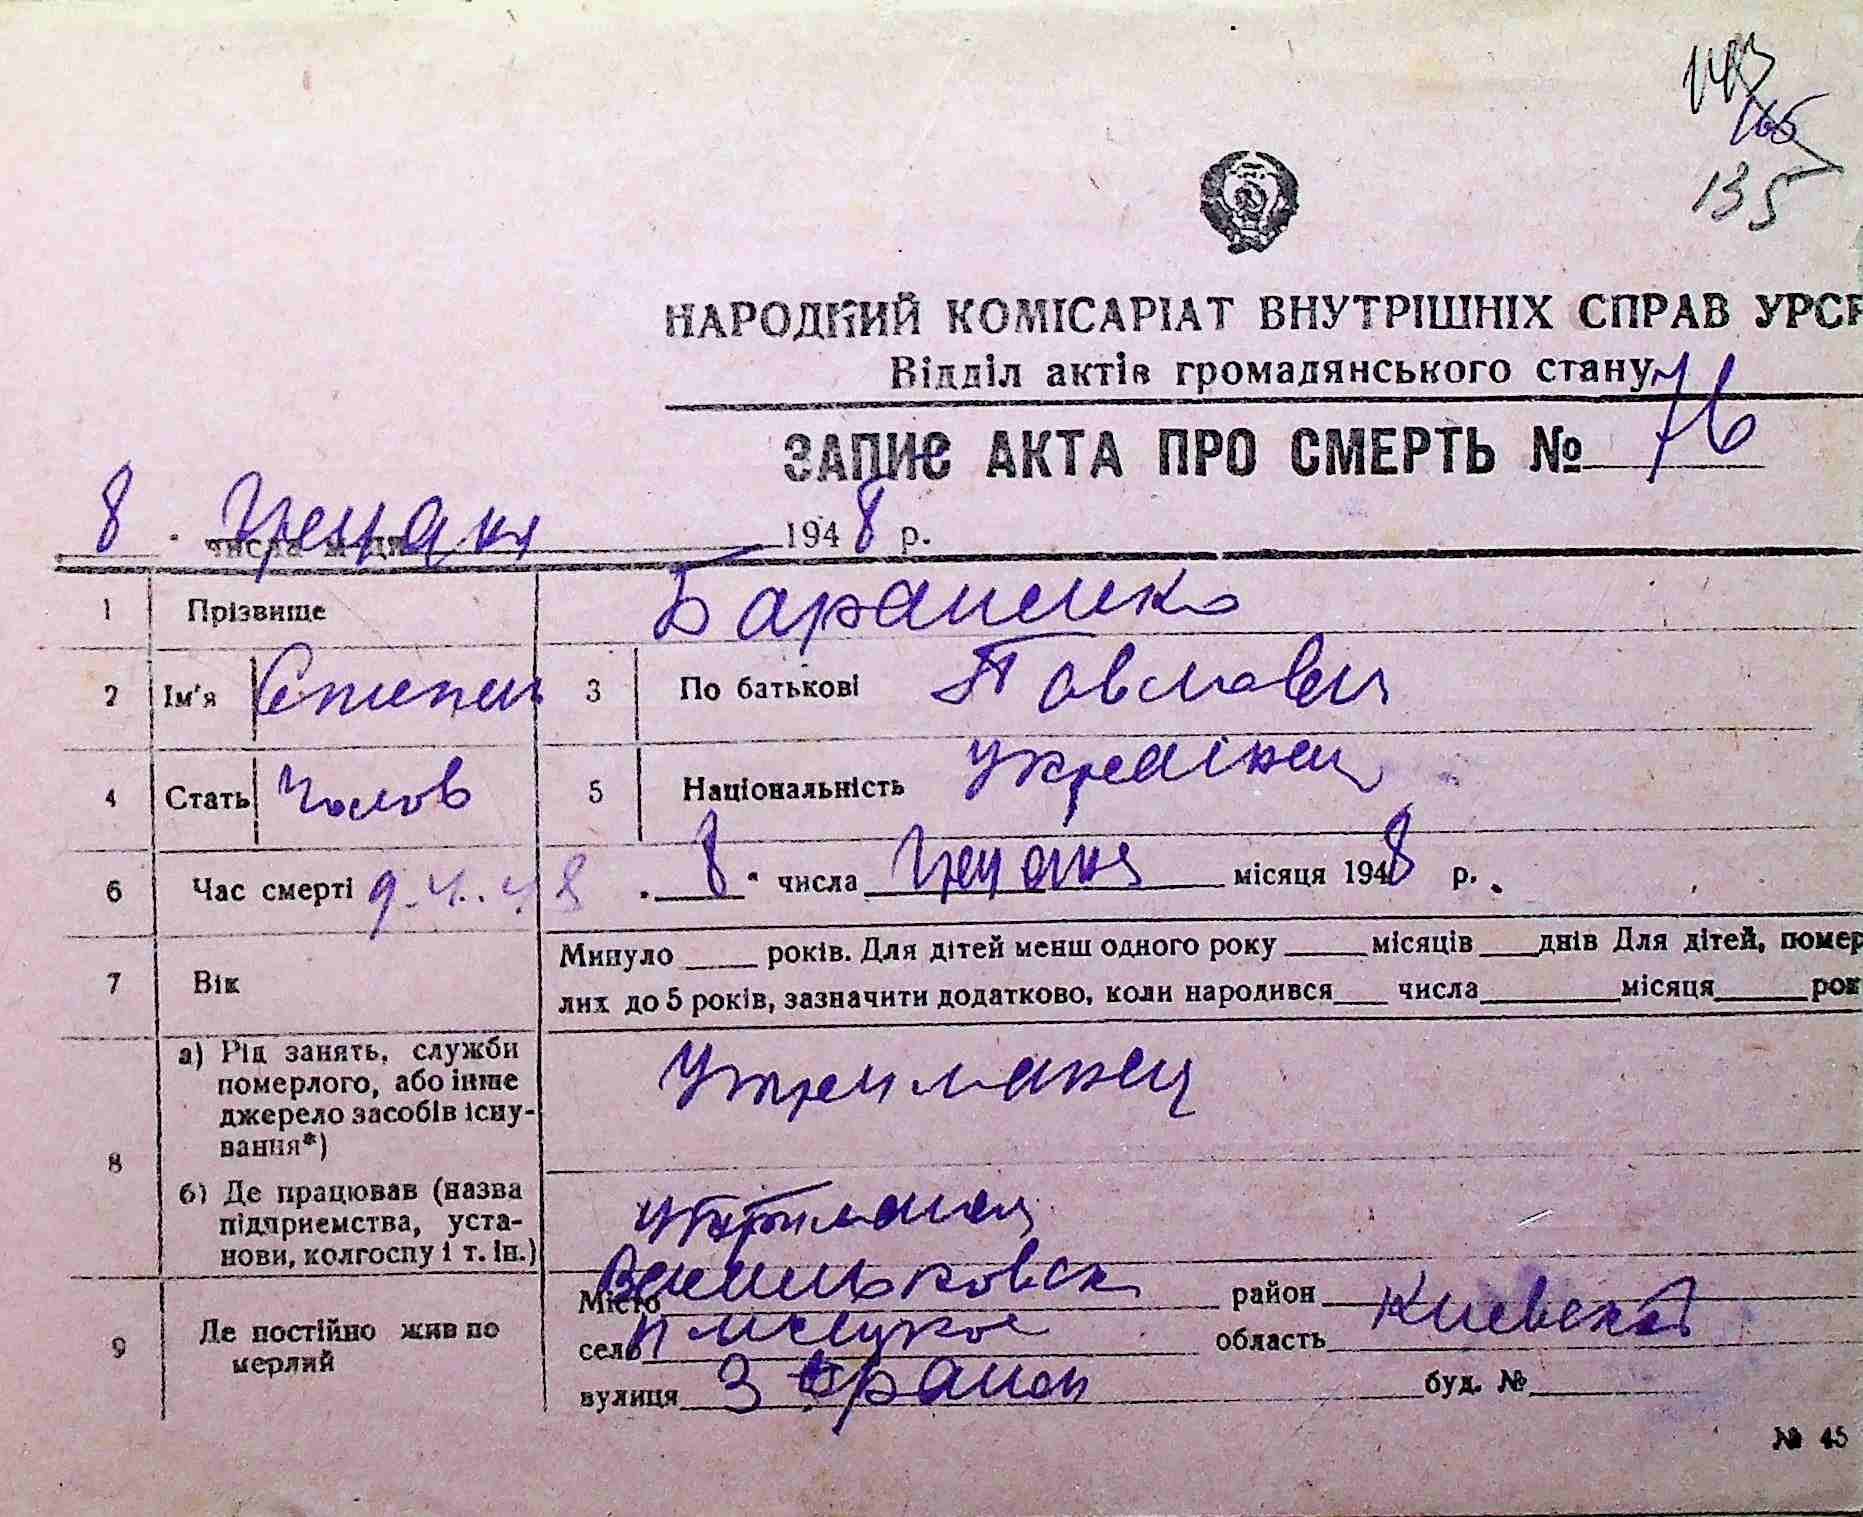 143
165
135
НАРОДНИЙ КОМІСАРІАТ ВНУТРІШНІХ СПРАВ УРСР
Відділ актів громадянського стану
ЗАПИС АКТА ПРО СМЕРТЬ № 76
8 числа м-ця 1948 р.
1 Прізвище Бараненко
2 Ім'я Степан 3 По батькові Павлович
4 Стать Чолов 5 Національність Українец
6 Час смерті 9.4.48 „8" числа місяця 1948 р.
7 Вік Минуло ____ років. Для дітей менш одного року ____ місяців ____ днів Для дітей, помер
лих до 5 років, зазначити додатково, коли народився ____ числа ____ місяця ____ рок
8 а) Рід занять, служби
померлого, або інше
джерело засобів існу-
вання*) Утриманец
б) Де працював (назва
підприємства, уста-
нови, колгоспу і т. ін.) утриманец
9 Де постійно жив по
мерлий
Місто Васильковск район
село область Киевская
вулиця 3 буд. №
№ 45